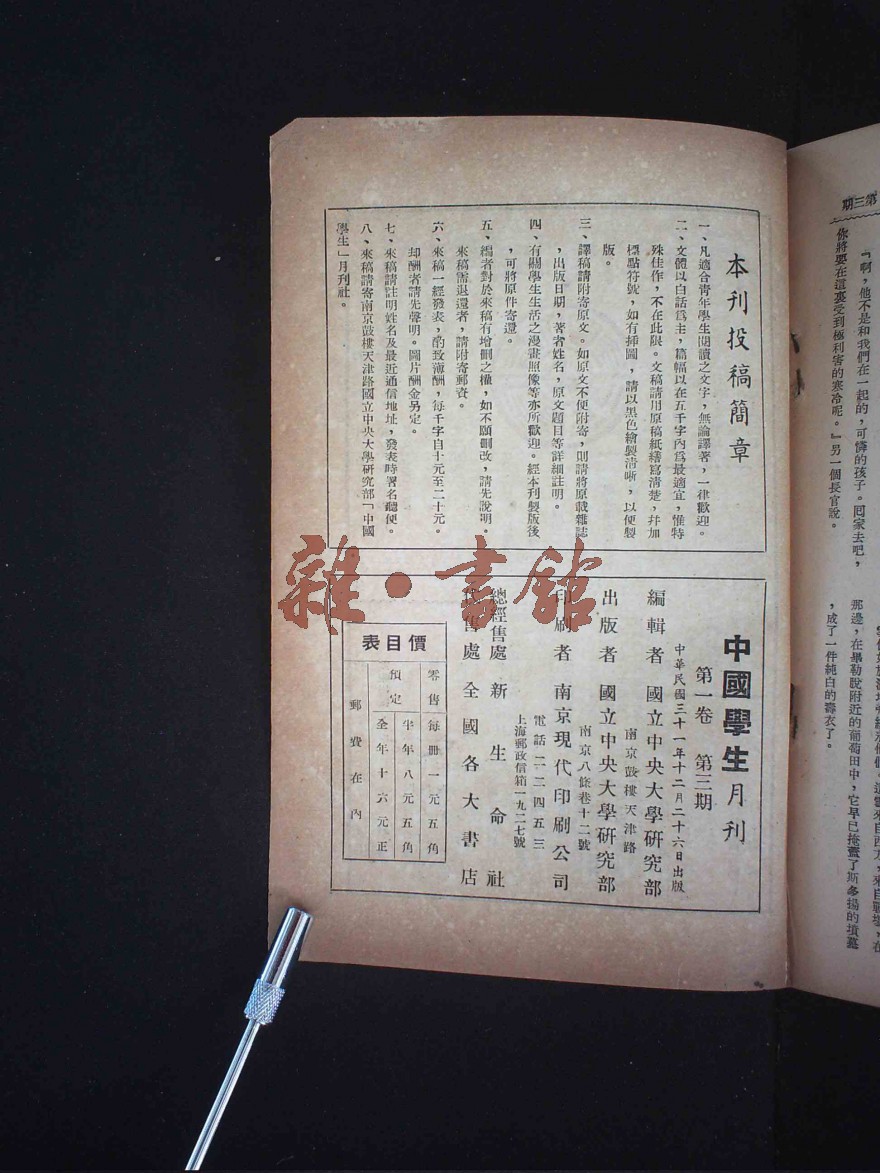 第三期
『啊，他不是和我們在一起的，可憐的孩子。囘家去吧，
你將要在這裏受到極利害的寒冷呢。』另一個長官說。
那邊，在畢勒說附近的葡萄田中，它早已掩蓋了斯多揚的墳墓
，成了一件純白的壽衣了。
本刊投稿簡章
一、凡適合青年學生閱讀之文字，無論譯著，一律歡迎。
二、文體以白話爲主，篇幅以在五千字內爲最適宜，惟特
殊佳作，不在此限。文稿請用原稿紙繕寫清楚，幷加
標點符號，如有揷圖，請以黑色繪製清晰，以便製
版。
三、譯稿請附寄原文。如原文不便附寄，則請將原載雜誌
，出版日期，著者姓名，原文題目等詳細註明。
四、有關學生生活之漫畫照像等亦所歡迎。經本刊製版後
，可將原件寄還。
五、編者對於來稿有增刪之權，如不願刪改，請先說明。
來稿需退還者，請附寄郵資。
六、來稿一經發表，酌致薄酬，每千字自十元至二十元。
却酬者請先聲明。圖片酬金另定。
七、來稿請註明姓名及最近通信地址，發表時署名聽便。
八、來稿請寄南京鼓樓天津路國立中央大學研究部「中國
學生」月刊社。
中國學生月刊
第一卷　第三期
中華民國三十一年十二月二十六日出版
編輯者　國立中央大學研究部
南京鼓樓天津路
出版者　國立中央大學研究部
南京八條巷十二號
印刷者　南京現代印刷公司
電話二二四五三
上海郵政信箱一九二七號
總經售處　新生命社
售處　全國各大書店
價目表
零售　每冊一元五角
預定　半年八元五角
全年十六元正
郵費在內
雜·書館